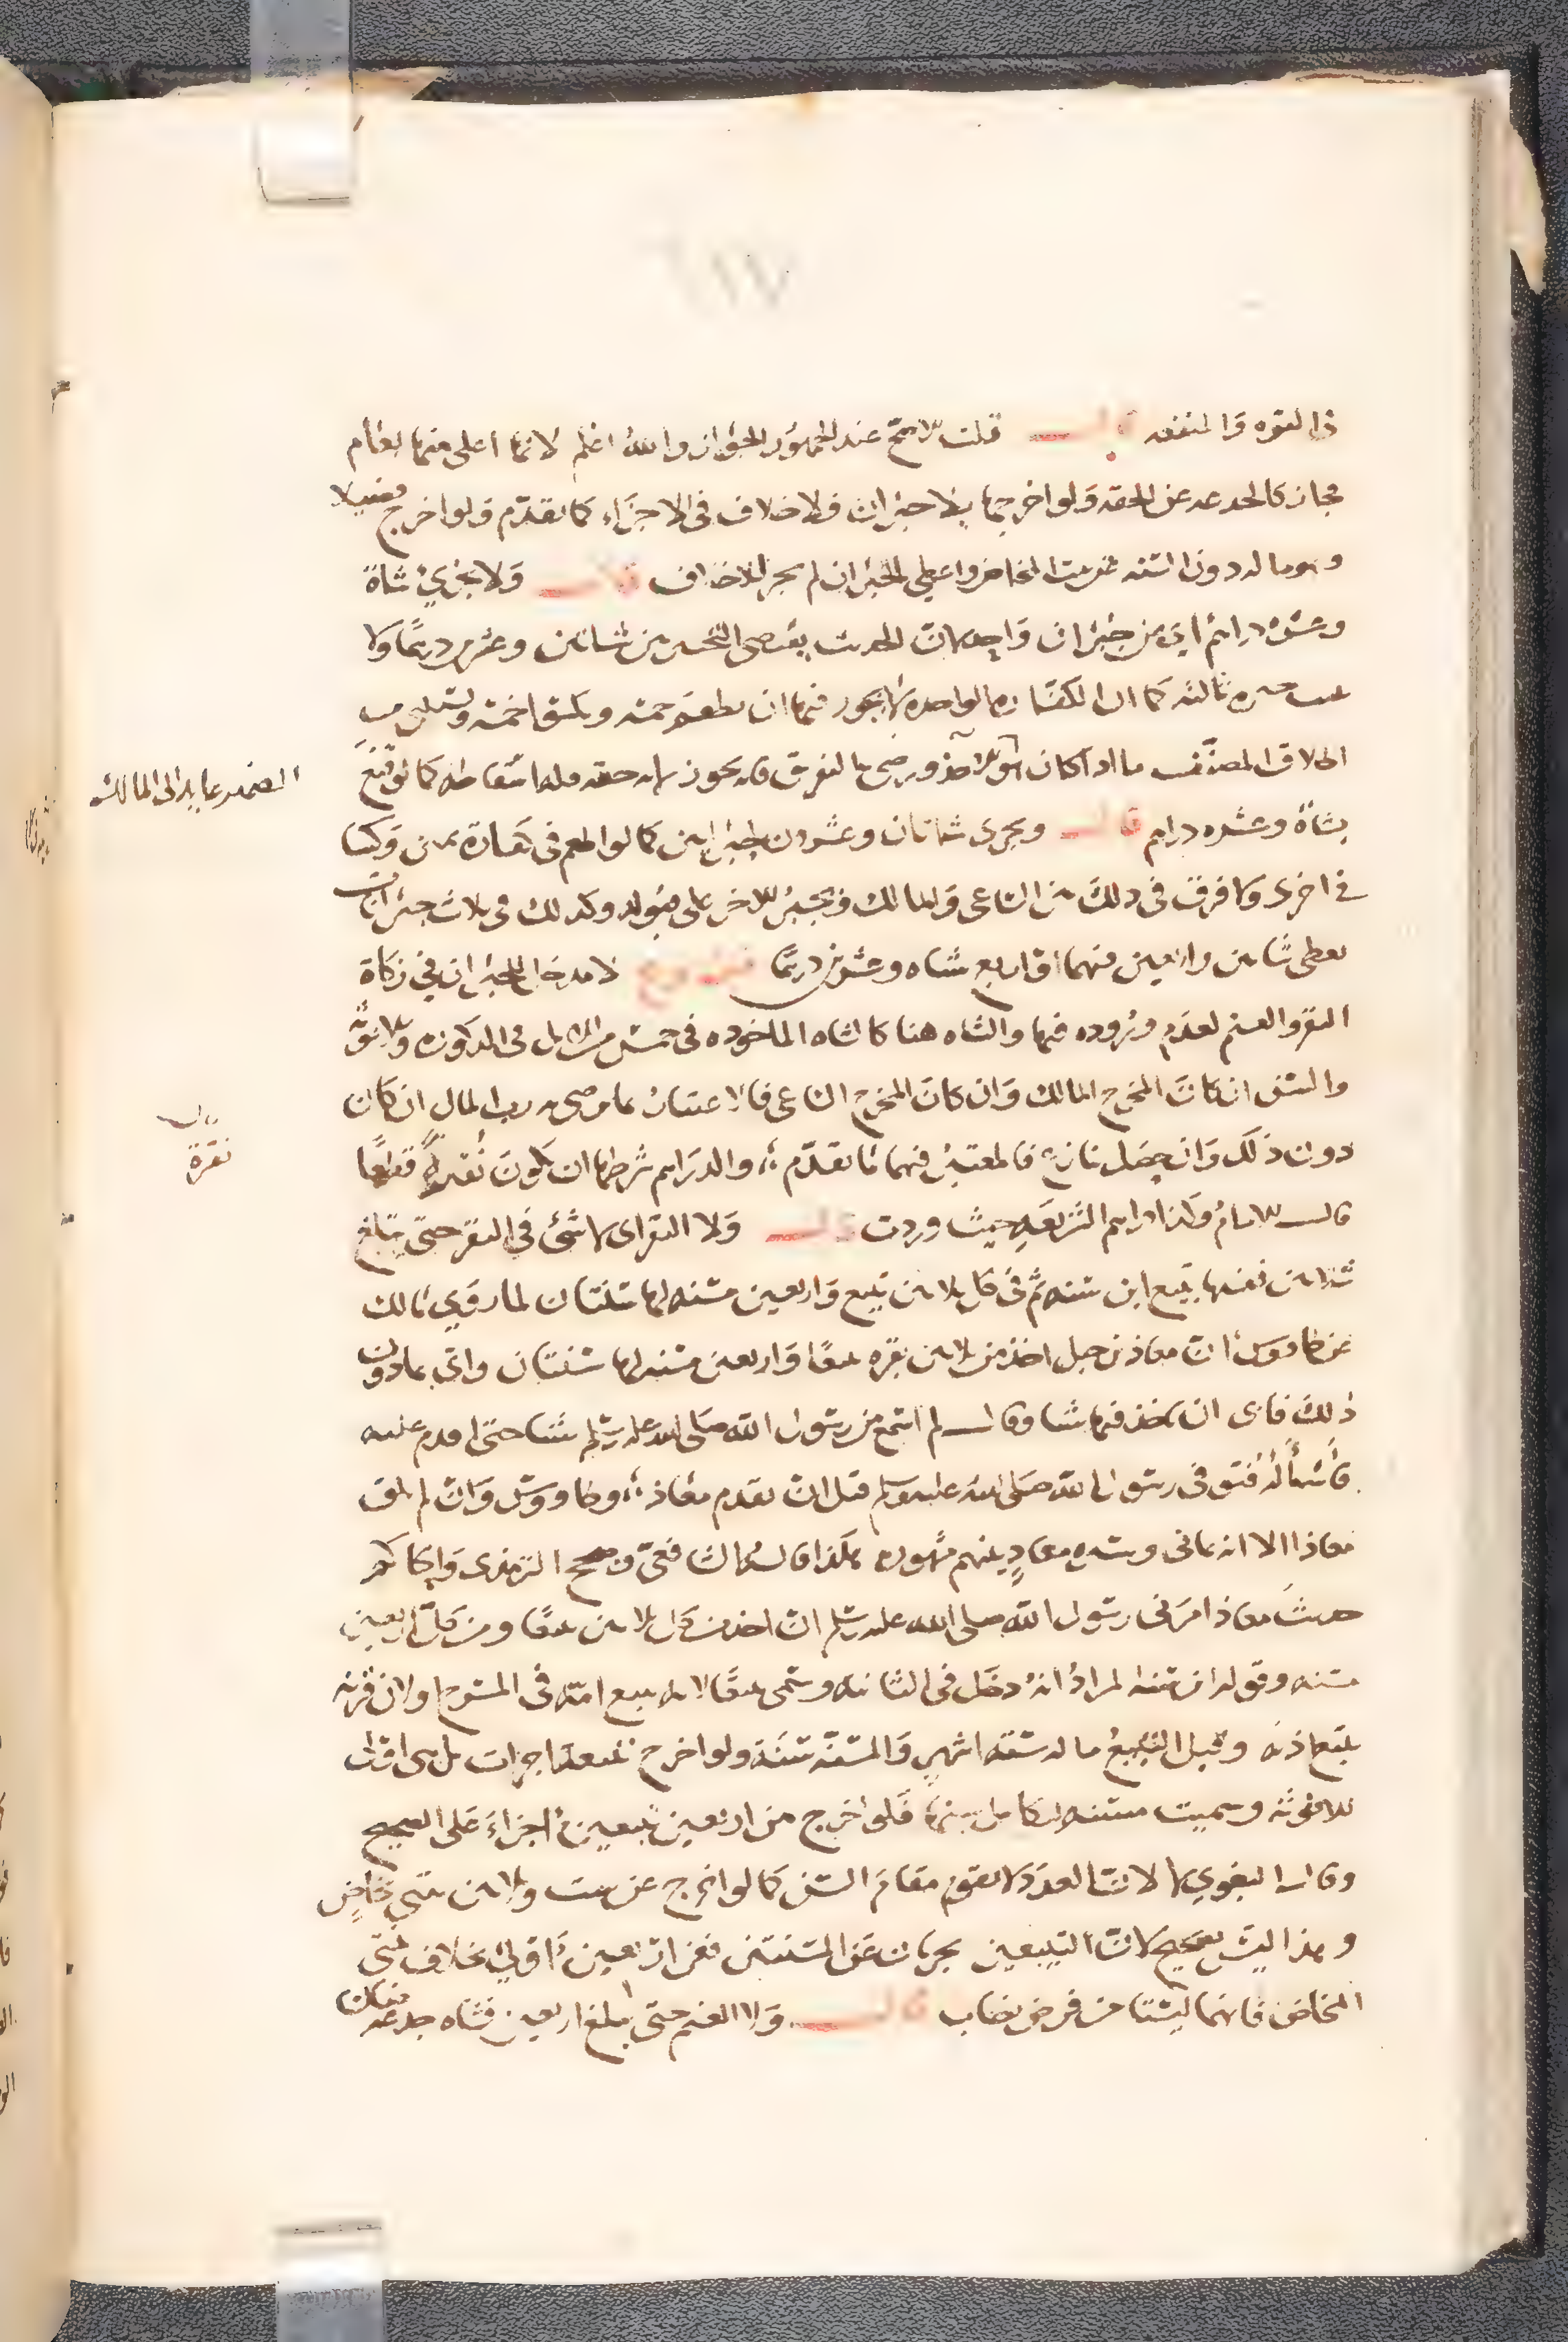 في القوة والمنفعة قال قلت الاصح عند الجمهور الجواز والله اعلم لانها اعلى منها بعام
فجاز كالجذعة عن الحقة ولو اخرجها بلا جبران فلا خلاف في الاجزاء كما تقدم ولو اخرج فصيلا
وهو ما له دون السنة عن بنت المخاض واعطى الجبران لم يجز للاخلاف قال ولا تجزئ شاة
وعشرة دراهم اي عن جبران واحد لان الحديث يقتضي التخيير بين شاتين وعشرين درهما ولا
خيرة ثالثة كما ان الكفارة الواحدة لا يجوز فيها ان يطعم خمسة ويكسو خمسة
اطلاق المصنف ما اذا كان هو الاخذ ورضي بالتفريق فانه يجوز لانه حقه وله اسقاطه كما لو قنع
بشاة وعشرة دراهم قال وتجزئ شاتان وعشرون لجبرانين كما لو اطعم في كفارة يمين وكسا
في اخرى ولا فرق في ذلك بين الساعي والمالك فيجبر الاخر على قبوله وكذلك في ثلاث جبرانات
يعطي شاتين واربعين منهما او اربع شياه وعشرين درهما فروع لا مدخل للجبران في زكاة
البقر والغنم لعدم وروده فيها والشاة هنا كالشاة الماخوذة في خمس من الابل في الذكورة والانوثة
والسن ان كان المخرج المالك وان كان المخرج الساعي فالاعتبار بما رضي به رب المال ان كان
دون ذلك وان حصل تنازع فالمعتبر فيهما ما تقدم والدراهم شرطها ان تكون نقرة قطعا
قال الامام وكذا دراهم الشريعة حيث وردت قال ولا البقر اي لا شئ في البقر حتى تبلغ
ثلاثين ففيها تبيع ابن سنة ثم في كل ثلاثين تبيع واربعين مسنة لها سنتان لما روى مالك
عن طاووس ان معاذ بن جبل اخذ من ثلاثين بقرة تبيعا واربعين مسنة لها سنتان واتي بما دون
ذلك فابى ان ياخذ فيها شيا وقال لم اسمع من رسول الله صلى الله عليه وسلم شيا حتى اقدم عليه
فاسأله فتوفي رسول الله صلى الله عليه وسلم قبل ان يقدم معاذ وطاووس وان لم يلق
معاذا الا انه يماني وسيرة معاذ بينهم مشهورة هكذا قاله الشافعي وصحح الترمذي والحاكم
حديث معاذ امرني رسول الله صلى الله عليه وسلم ان اخذ من كل ثلاثين تبيعا ومن كل اربعين
مسنة وقوله ابن سنة المراد انه دخل في الثانية وسمي تبيعا لانه يتبع امه في المسرح او لان قرنه
يتبع اذنه وقيل التبيع ما له ستة اشهر والمسنة سنة ولو اخرج تبيعة اجزات بل هي اولى
للانوثة وسميت مسنة لتكامل سنها فلو اخرج من اربعين تبيعين اجزاء على الصحيح
وقال البغوي لا لان العدد لا يقوم مقام السن كما لو اخرج عن ست وثلاثين بنتي مخاض
وهذا ليس بصحيح لان التبيعين يجزيان عن الستين فعن اربعين اولى بخلاف بنتي
المخاض فانهما ليستا من فرض نصاب قال ولا الغنم حتى تبلغ اربعين فشاة جذعة ضان
الضمير عايد الى المالك
نقرة